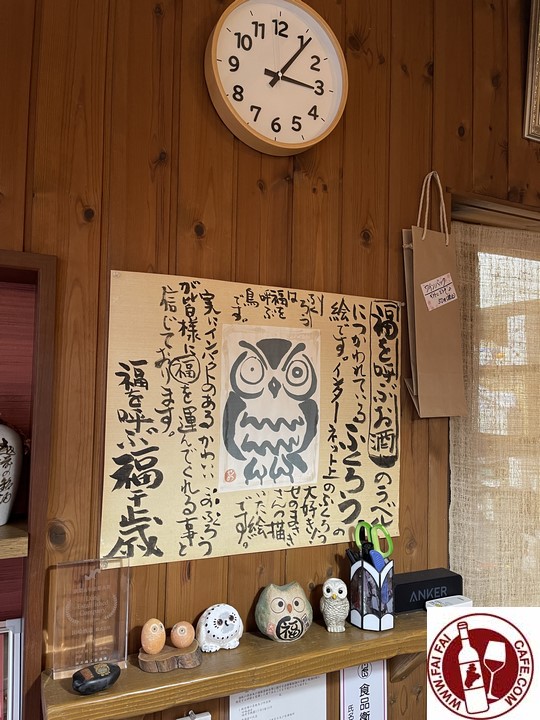 12
1
2
3
4
5
6
7
8
9
10
11
福を呼ぶお酒のラベル
につかわれているふくろうの
絵です。インターネット上のふくろう
大好き
さんの描
いた絵
です。
ふく
ろう
は
福を
呼ぶ
鳥
です。
実にインパクトのあるかわいいふくろう
が皆様に福を運んでくれる事と
信じております。
福を呼ぶ福千歳
ワインバッグ
福
ANKER
食品衛
WWW.FAIFAI CAFE.COM